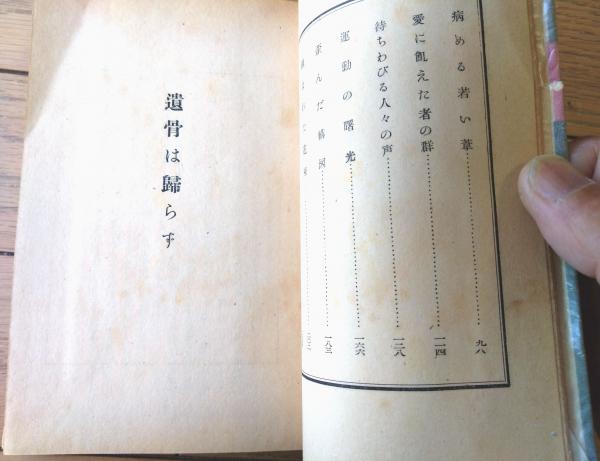 病める若い葦 九八
愛に飢えた者の群 一一四
待ちわびる人々の声 一二八
運動の曙光 一六六
歪んだ構図 一八三
遺骨は歸らず